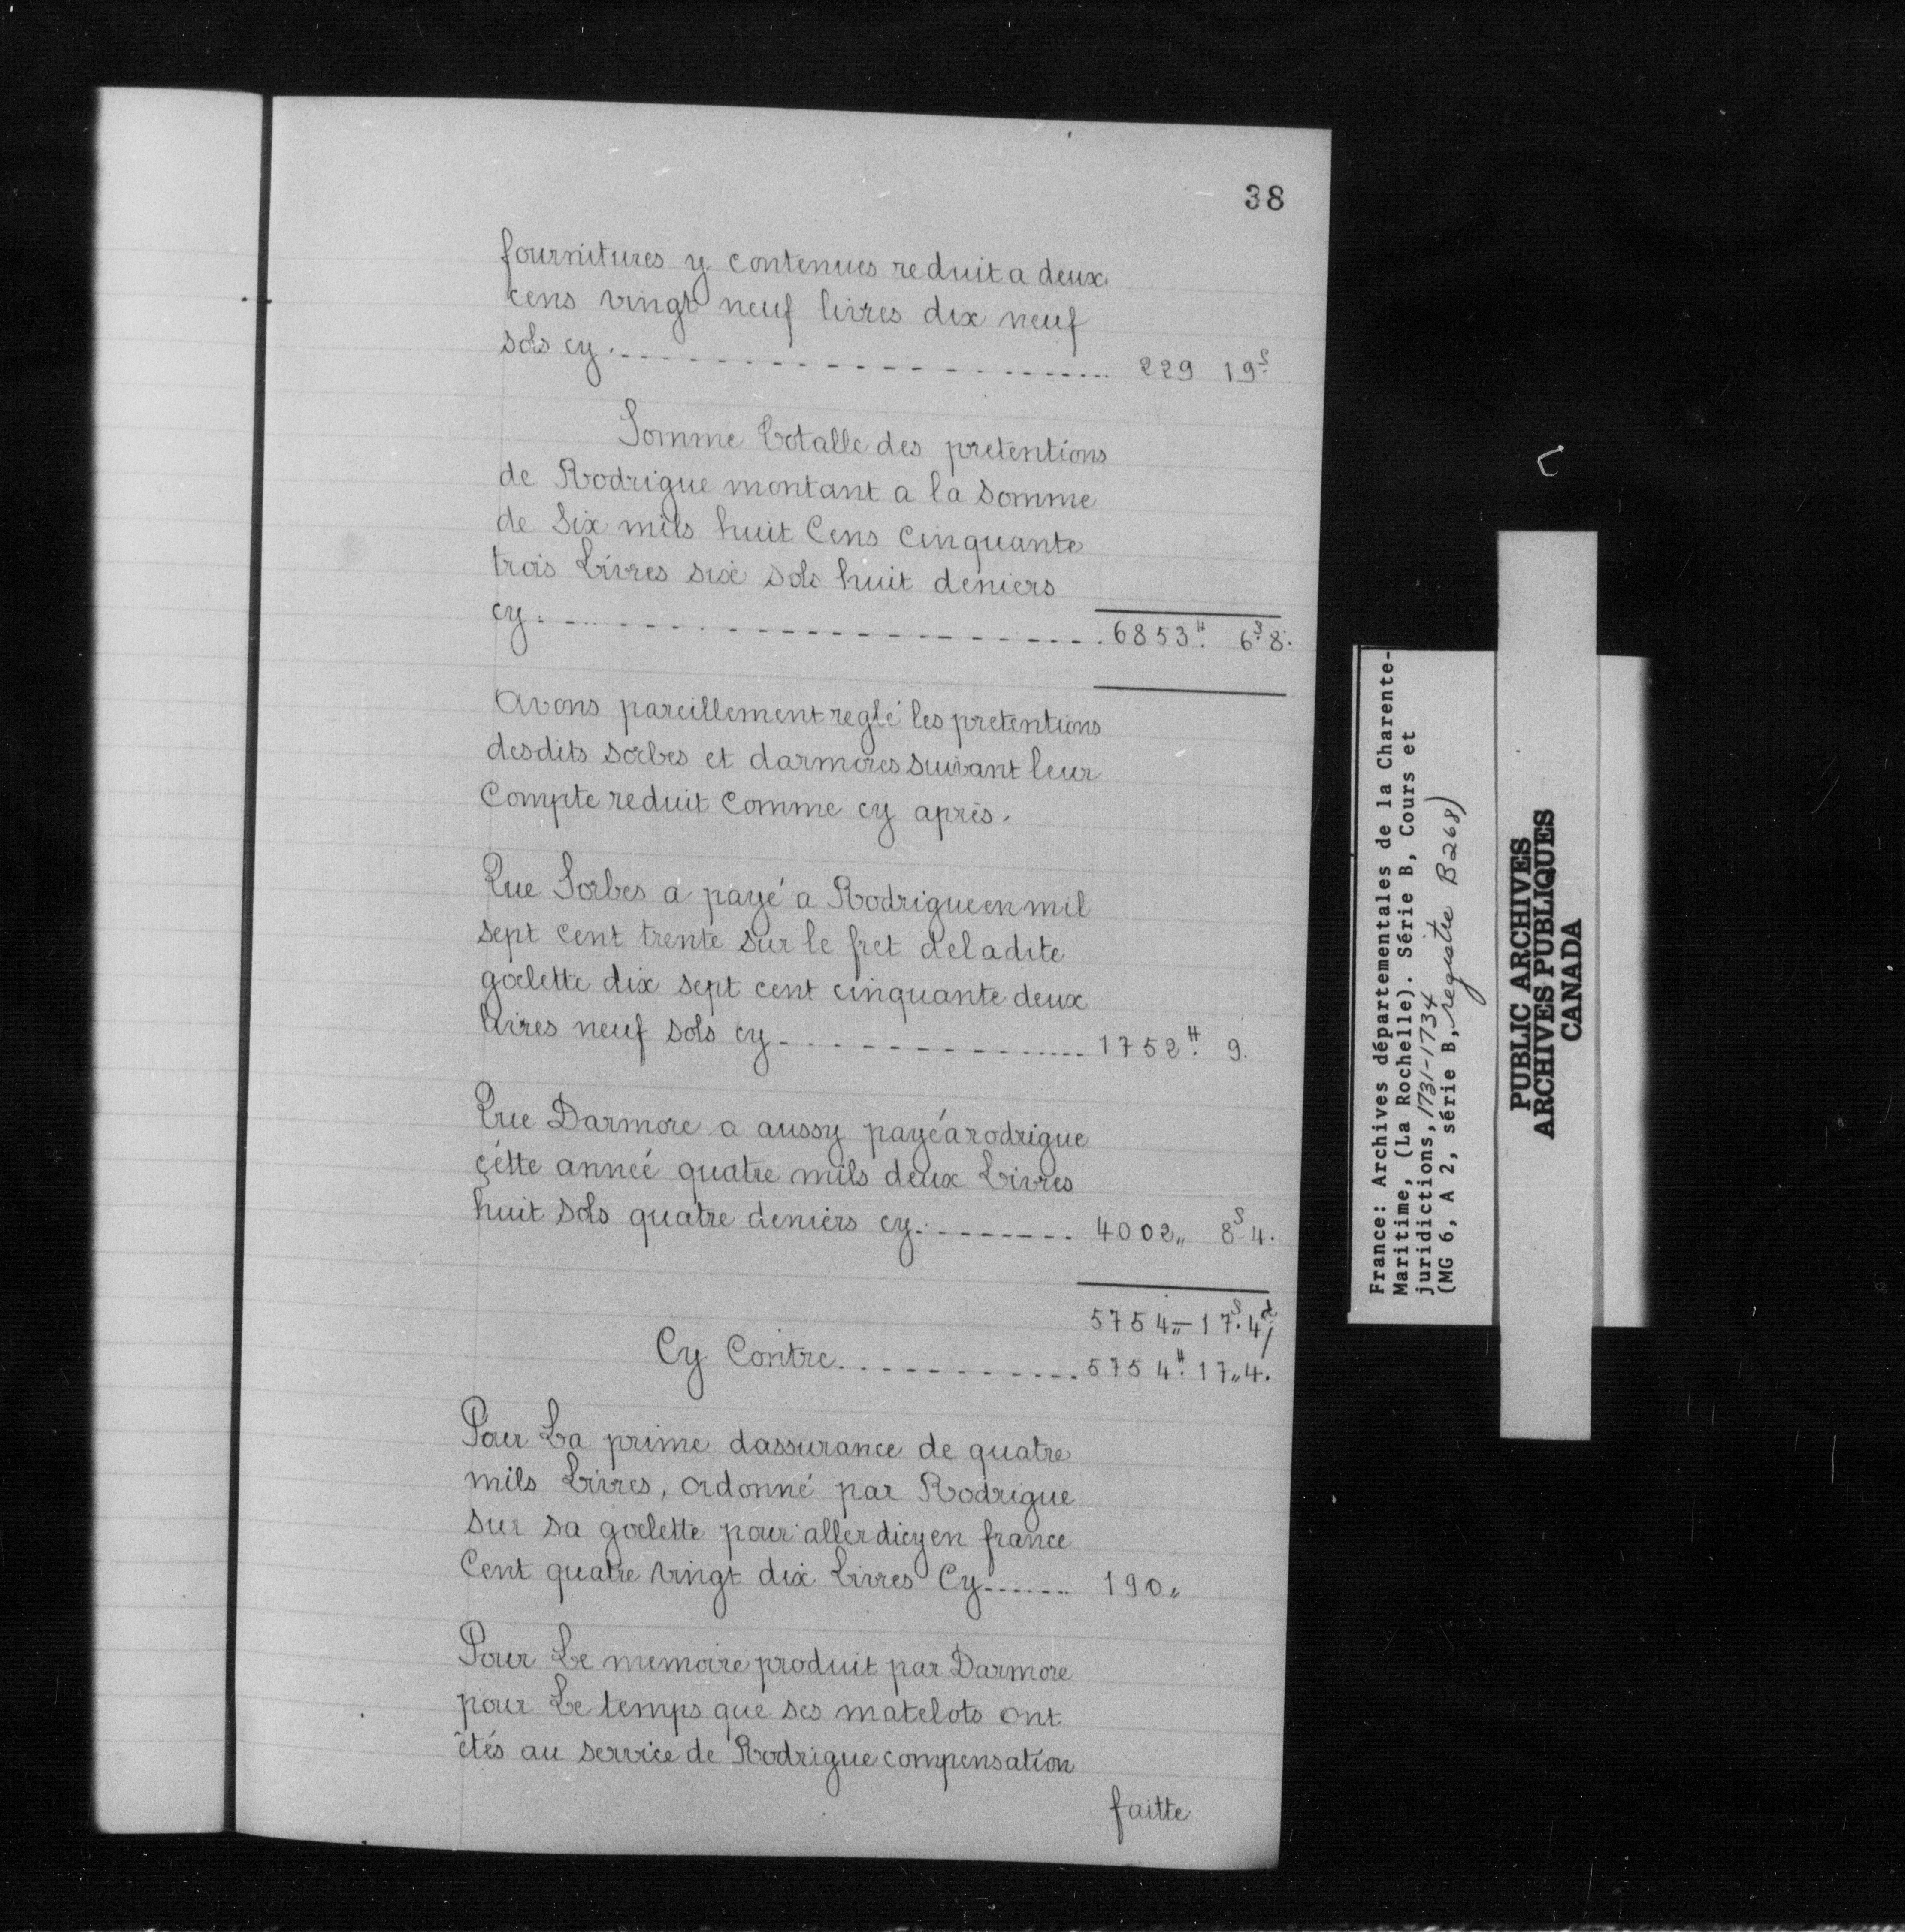 38
fournitures y contenues reduit a deux
cens vingt neuf livres dix neuf
sols cy. 229 19s
Somme totalle des pretentions
de Rodrigue montant a la somme
de Six mils huit Cens Cinquante
trois Livres six sols huit deniers
cy. 6853# 6s 8.
Avons pareillement reglé les pretentions
desdits sorbes et darmores suivant leur
Compte reduit Comme cy après.
Que Sorbes a payé a Rodrigue en mil
sept cent trente sur le fret deladite
goelette dix sept cent cinquante deux
livres neuf sols cy 1752# 9.
Que Darmore a aussy payé a rodrigue
cétte anneé quatre mils deux Livres
huit sols quatre deniers cy. 4002,, 8s 4.
5754,,-17s.4d
Cy Contre 5754# 17,,4.
Pour La prime dassurance de quatre
mils Livres, ordonné par Rodrigue
sur sa goelette pour aller dicy en france
Cent quatre vingt dix Livres Cy 190,,
Pour Le memoire produit par Darmore
pour Le temps que ses matelots ont
étés au service de Rodrigue compensation
faitte
France: Archives départementales de la Charente-
Maritime, (La Rochelle). Série B, Cours et
juridictions, 1731-1734
(MG 6, A 2, série B, registre B268)
PUBLIC ARCHIVES
ARCHIVES PUBLIQUES
CANADA